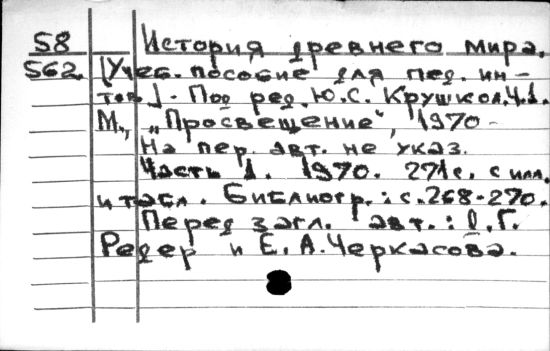 58 История древнего мира.
562. [Учеб. пособие для пед. ин-
тов]. Под ред. Ю.С. Крушкол. Ч.1.
М., „Просвещение", 1970-
На пер. авт. не указ.
Часть 1. 1970. 271с. с илл.
и табл. Библиогр.: с.268-270.
Перед загл. авт.: Д.Г.
Редер и Е.А.Черкасова.